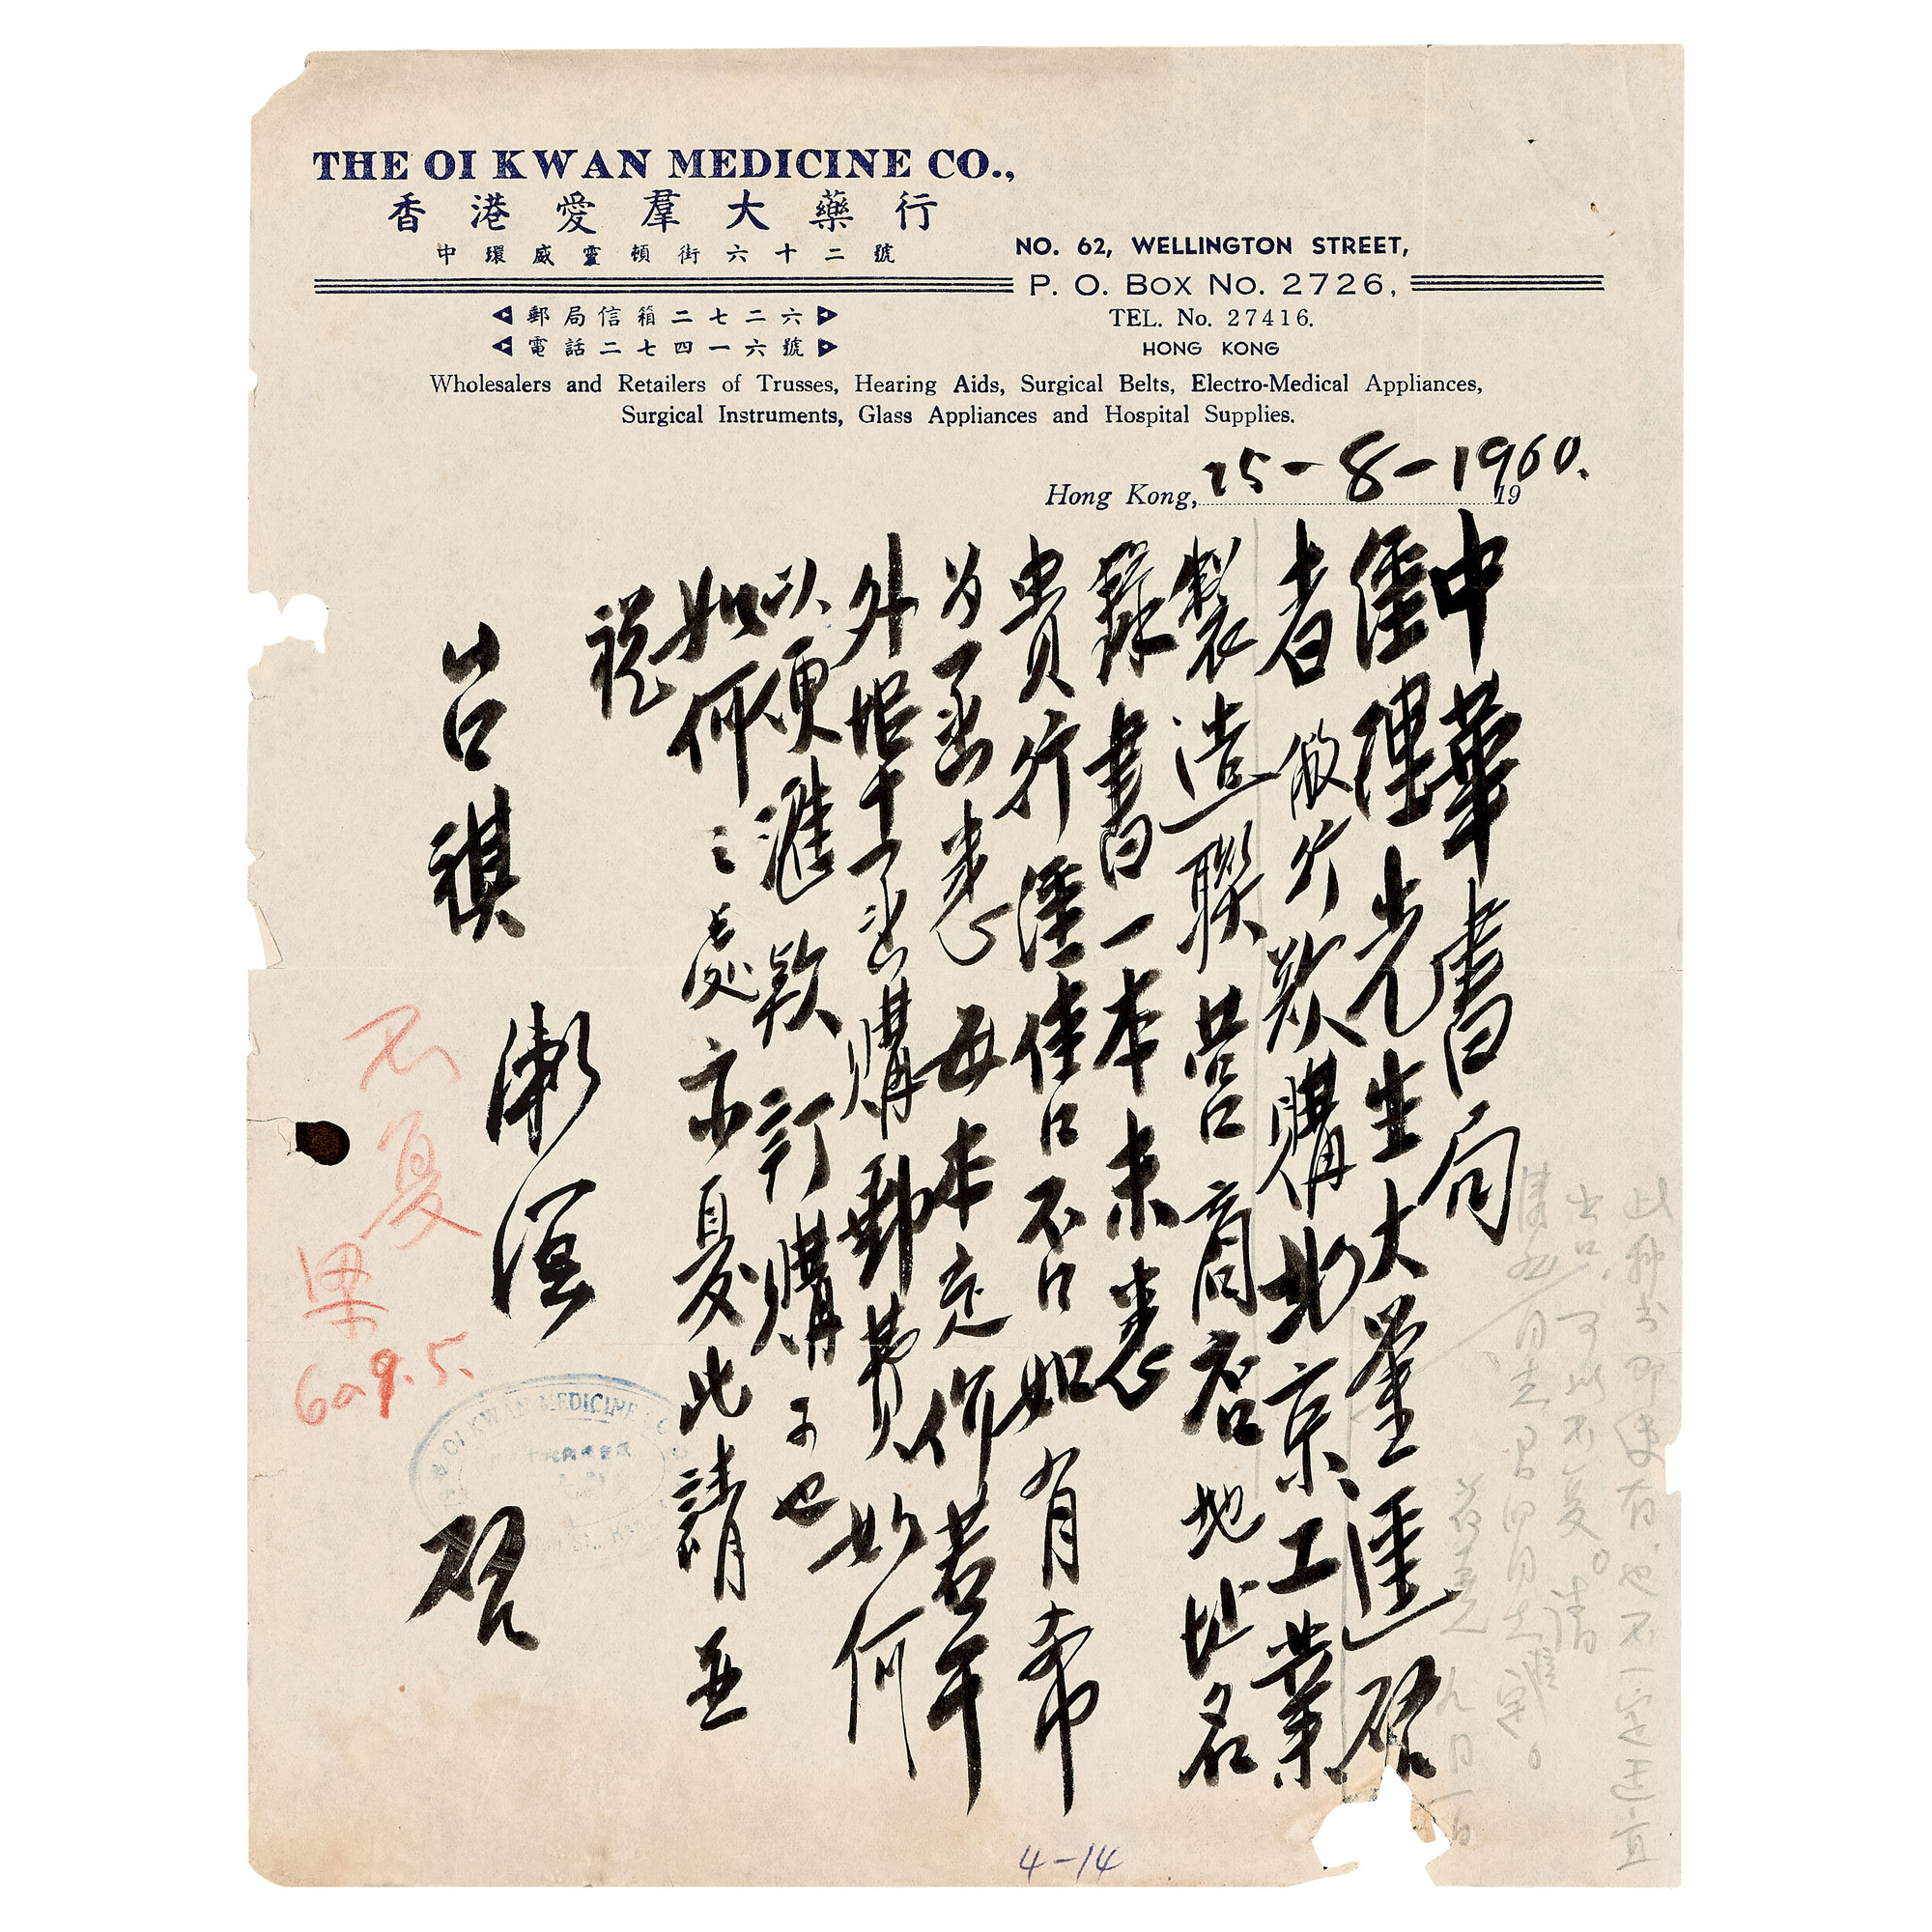 THE OI KWAN MEDICINE CO.,
香港愛羣大藥行
中環威靈頓街六十二號
NO. 62, WELLINGTON STREET,
P. O. BOX NO. 2726,
◁郵局信箱二七二六▷
TEL. No. 27416.
◁電話二七四一六號▷
HONG KONG
Wholesalers and Retailers of Trusses, Hearing Aids, Surgical Belts, Electro-Medical Appliances,
Surgical Instruments, Glass Appliances and Hospital Supplies.
Hong Kong, 25-8-1960. 19
中華書局
經理先生大鑒逕啓
者敝行欲購北京工業
製造聯営商召地址名
錄書一本未悉
貴行經售口不口如有帘
为函悉每本定价若干
外埠十函購郵費如何
以便滙款訂購子也
如何之處亦夏此請並
祝
台祺
啓
不复
梁
60.9.5.
OI KWAN MEDICINE CO
此种书即使有也不一定
出口,可以不复。请
九月一日
4-14